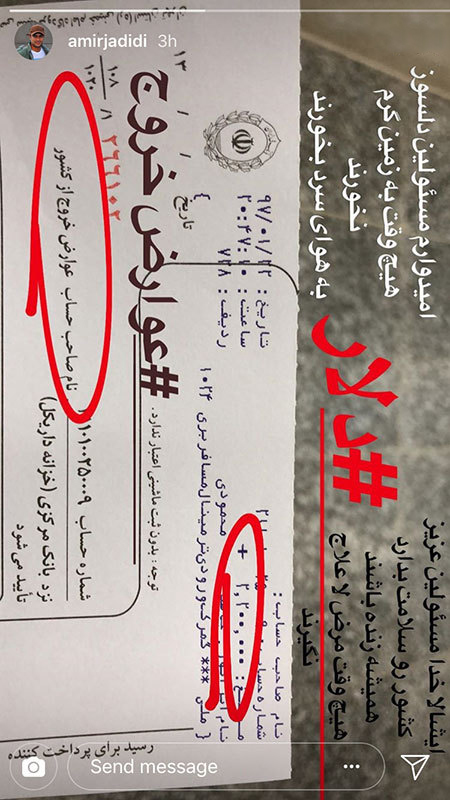 amirjadidi 3h
امیدوارم مسئولین دلسوز
هیچ وقت به زمین گرم
نخورند
به هوای سرد بخورند
#دلار
ایشالا خدا مسئولین عزیز
کشور رو سلامت بدارد
همیشه زنده باشند
هیچ وقت مرض لا علاج
نگیرند
تاریخ: ۹۷/۰۱/۲۲
ساعت: ۲۰:۴۷:۱۰
ردیف: ۷۲۸
نام صاحب حساب:
۲,۲۰۰,۰۰۰ +
محمودی
گمرک ورودی ترمینال مسافربری ۱۰۲۴
{ ملی ***
توجه: بدون ثبت ماشینی اعتبار ندارد.
تاریخ / / ۱۳
#عوارض خروج
شماره حساب
نام صاحب حساب عوارض خروج از کشور
نزد بانک مرکزی (خزانه داریکل)
تأیید می شود
رسید برای پرداخت کننده
Send message